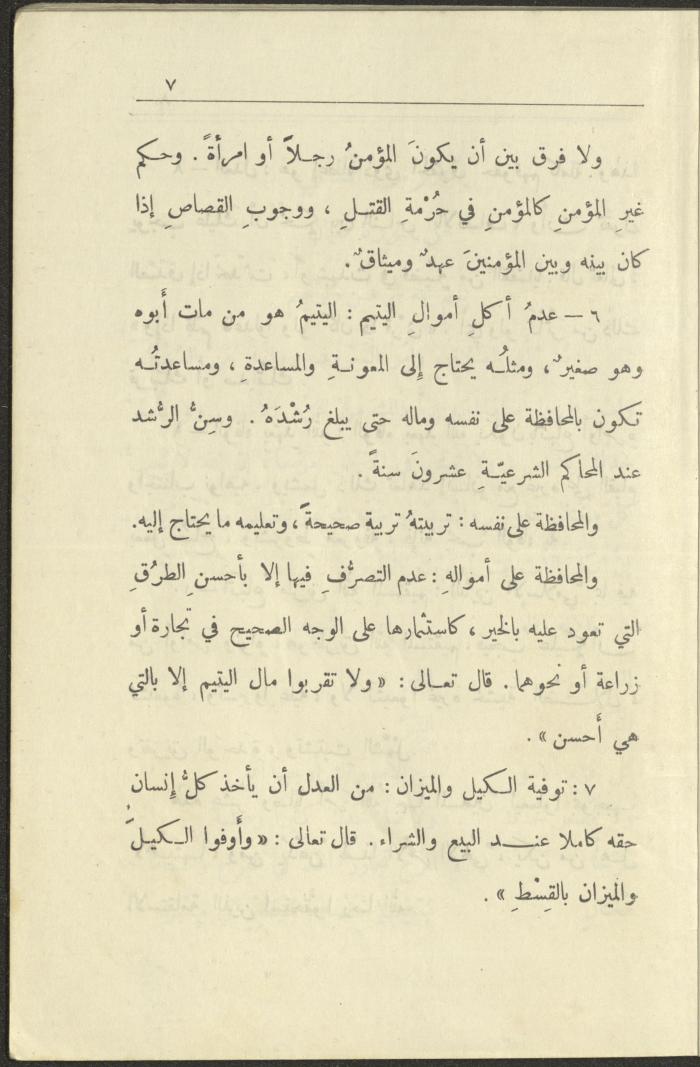 ٧
ولا فرق بين أن يكونَ المؤمنُ رجلاً أو امرأةً . وحكم
غيرِ المؤمنِ كالمؤمنِ في حُرْمةِ القتلِ ، ووجوبِ القصاصِ إذا
كان بينه وبين المؤمنينَ عهدٌ وميثاقٌ .
٦ – عدمُ أكلِ أموالِ اليتيم : اليتيمُ هو من مات أَبوه
وهو صغيرٌ ، ومثلُه يحتاج إِلى المعونةِ والمساعدةِ ، ومساعدتُه
تكون بالمحافظة على نفسه وماله حتى يبلغ رُشْدَهُ . وسِنُّ الرُّشد
عند المحاكم الشرعيّةِ عشرونَ سنةً .
والمحافظة على نفسه : تربيتهُ تربية صحيحةً ، وتعليمه ما يحتاج إليه .
والمحافظة على أموالهِ : عدم التصرُّفِ فيها إلا بأحسنِ الطرُقِ
التي تعود عليه بالخير ، كاستثمارها على الوجه الصحيح في تجارة أو
زراعة أو نحوهما . قال تعالى : « ولا تقربوا مال اليتيم إلا بالتي
هي أَحسن » .
٧ : توفية الكيل والميزان : من العدل أن يأخذ كلُّ إِنسان
حقه كاملا عند البيع والشراء . قال تعالى : « وأَوفوا الكيلَ
والميزان بالقِسْطِ » .